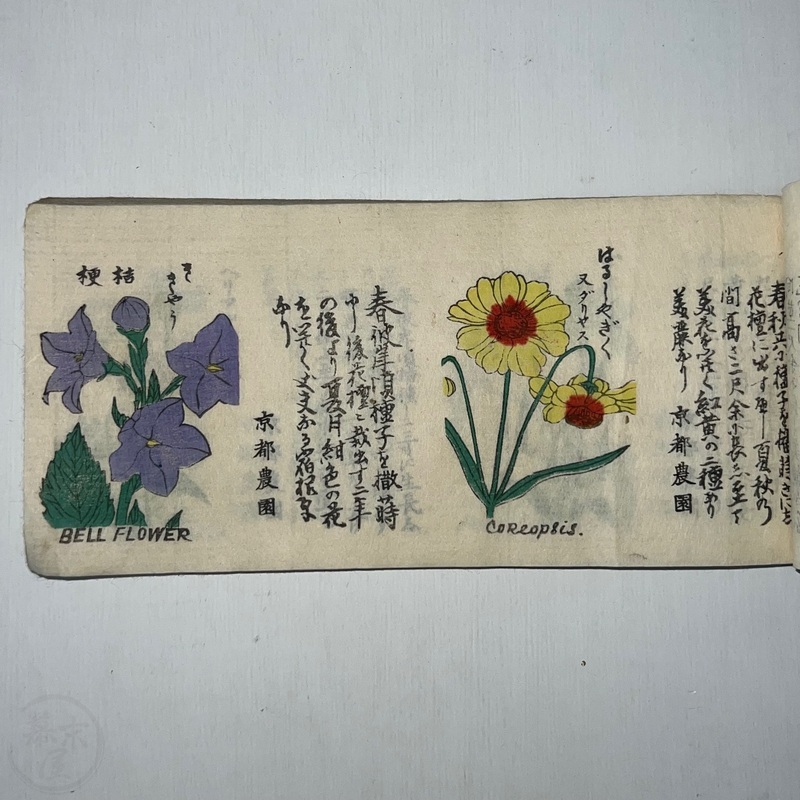 花壇に出す可し夏秋の
間高さ二尺余
美花を咲く紅黄の二種あり
美麗なり 京都農園
はるしやぎく
又ダリヤス
Coreopsis.
春彼岸頃種子を撒蒔
し後花壇に栽出す二年
の後より夏月紺色の花
を咲く丈夫なる宿根草
なり
京都農園
ききやう
桔梗
BELL FLOWER